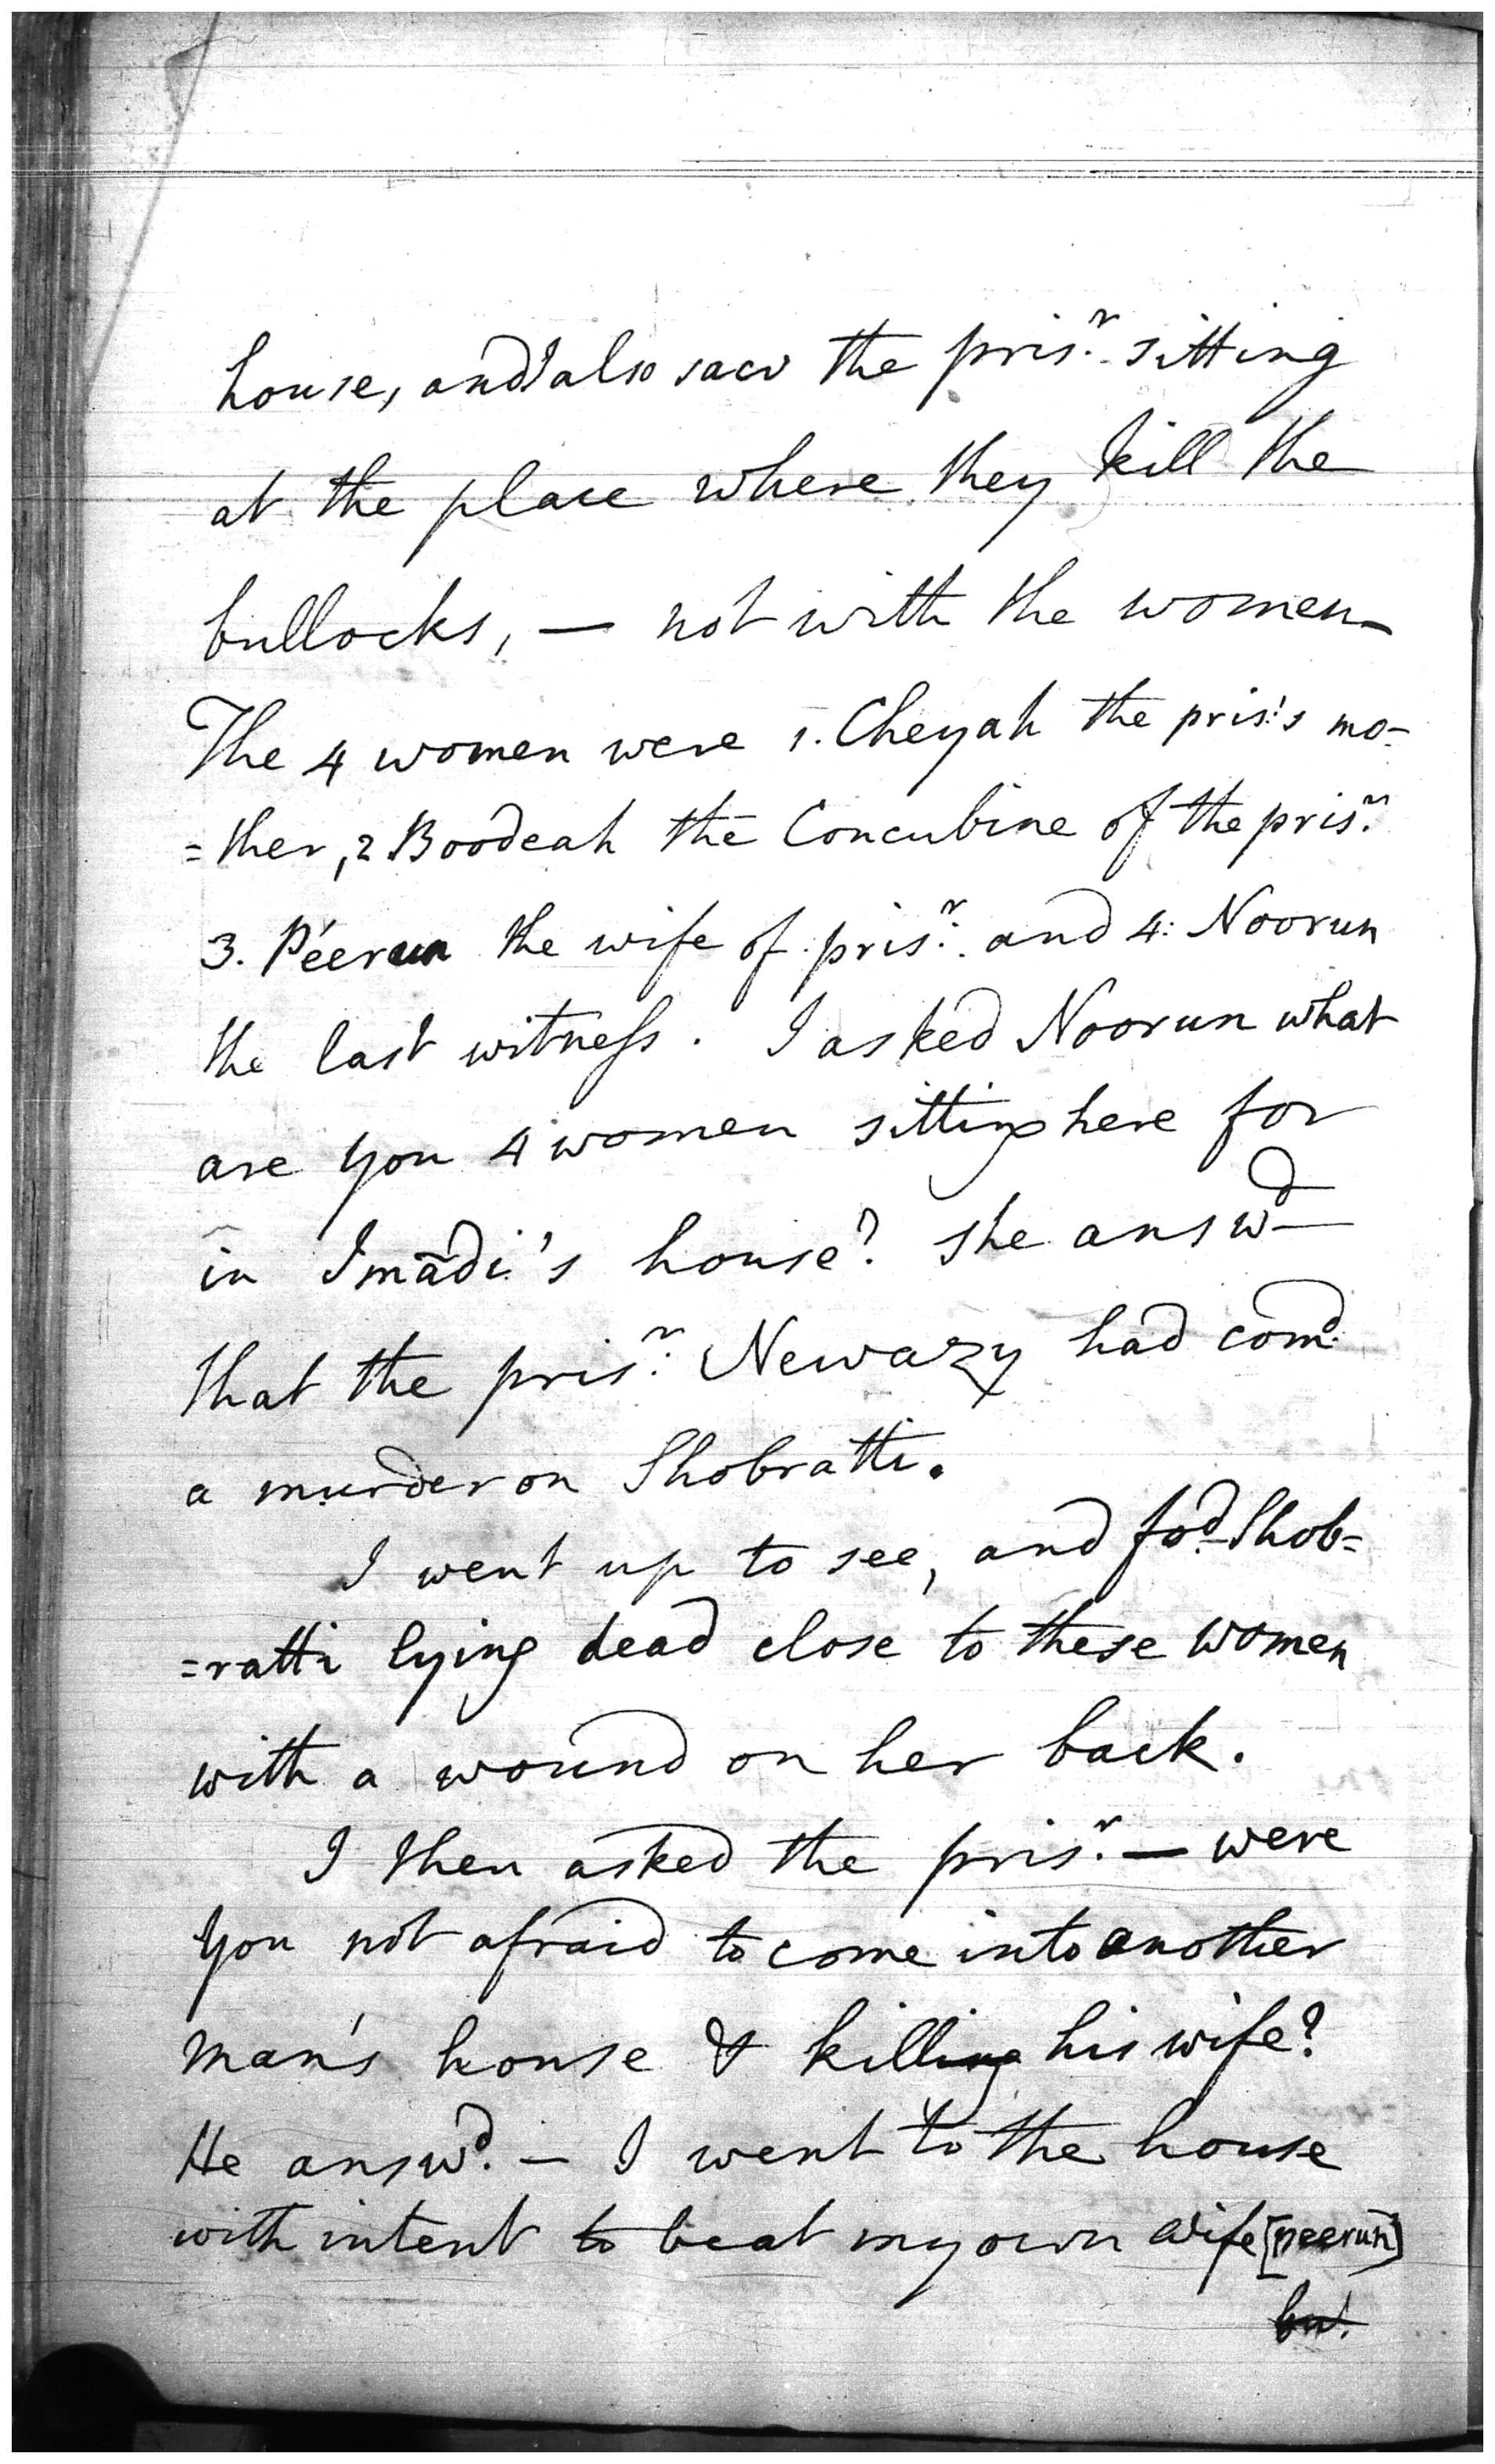 house, and I also saw the pris.r sitting
at the place where they kill the
bullocks, — not with the women
The 4 women were 1. Cheyah the pris:'s mo-
=ther, 2 Boodeah the Concubine of the pris.r
3. Peerun the wife of pris.r and 4: Noorun
the last witness. I asked Noorun what
are you 4 women sitting here for
in Imādi's house? she answd
that the pris.r Newazy had comd
a murder on Shobratti.
I went up to see, and fod Shob=
=ratti lying dead close to these women
with a wound on her back.
I then asked the pris.r — were
you not afraid to come into another
man's house & killing his wife?
He answd. — I went to the house
with intent to beat my own wife [peerun]
but